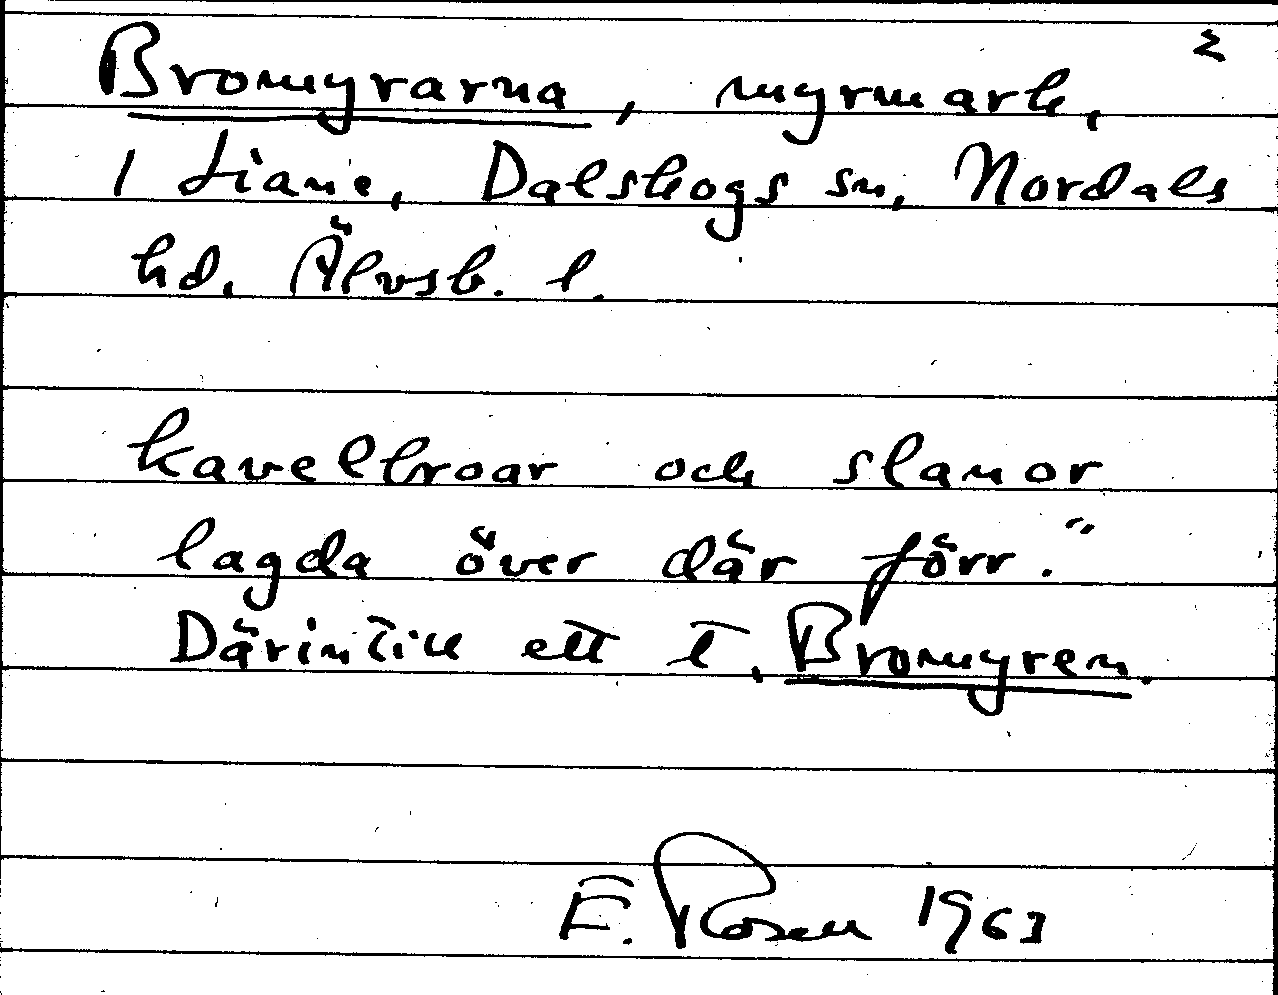 2
Bromyrarna, myrmark,
1 Liane, Dalskogs sn, Nordals
hd. Älvsb. l.
kavelbroar och slanor
lagda över där förr."
Därintill ett t. Bromyren.
E. Rosell 1963